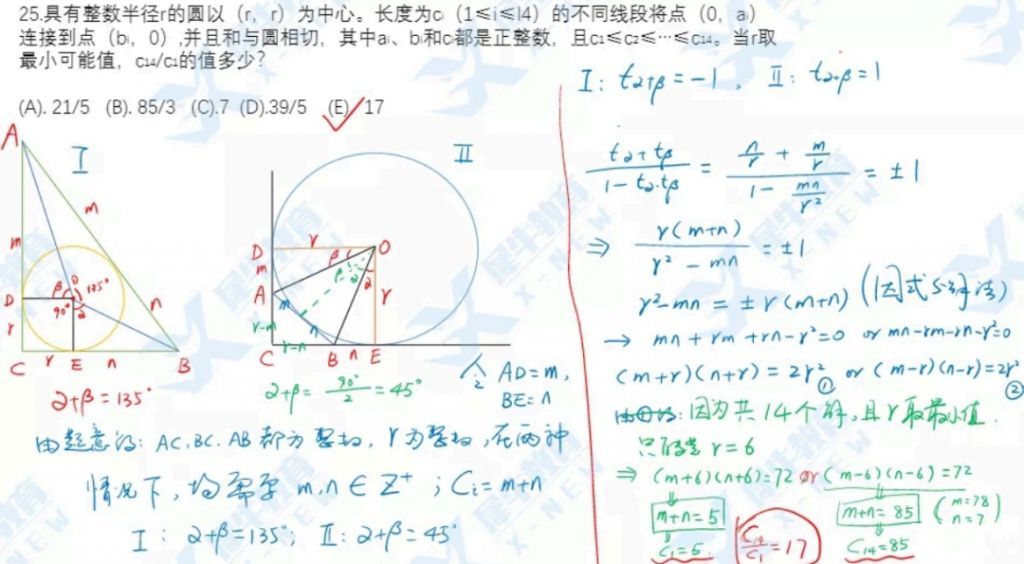 25.具有整数半径r的圆以（r，r）为中心。长度为cᵢ（1≤i≤l4）的不同线段将点（0，aᵢ）
连接到点（bᵢ，0）,并且和与圆相切，其中aᵢ、bᵢ和cᵢ都是正整数，且c₁≤c₂≤…≤c₁₄。当r取
最小可能值，c₁₄/c₁的值多少？
(A). 21/5 (B). 85/3 (C).7 (D).39/5 (E) 17
A
I
m
m
D
β
O
135°
90°
α
n
r
C
r
E
n
B
α+β=135°
II
D
r
O
m
β
β
α
α
A
m
r
r-m
n
C
r-n
B
n
E
α+β= 90°/2 =45°
AD=m,
BE=n
由题意得: AC.BC.AB都为整数, r为整数, 在两种
情况下, 均需要 m,n∈Z⁺ ; Cᵢ=m+n
I: α+β=135°; II: α+β=45°
I: tα+β=-1, II: tα+β=1
(tα+tβ)/(1-tα·tβ) = (n/r + m/r)/(1 - mn/r²) = ±1
⇒ r(m+n)/(r²-mn) = ±1
r²-mn=±r(m+n) (因式分解法)
→ mn+rm+rn-r²=0 or mn-rm-rn-r²=0
(m+r)(n+r)=2r² ① or (m-r)(n-r)=2r² ②
因为共14个解, 且r取最小值.
r=6
⇒ (m+6)(n+6)=72 or (m-6)(n-6)=72
m+n=5
m+n=85 (m=78 n=7)
C₁=5
C₁₄/C₁=17
C₁₄=85
犀牛教育
X-NEW